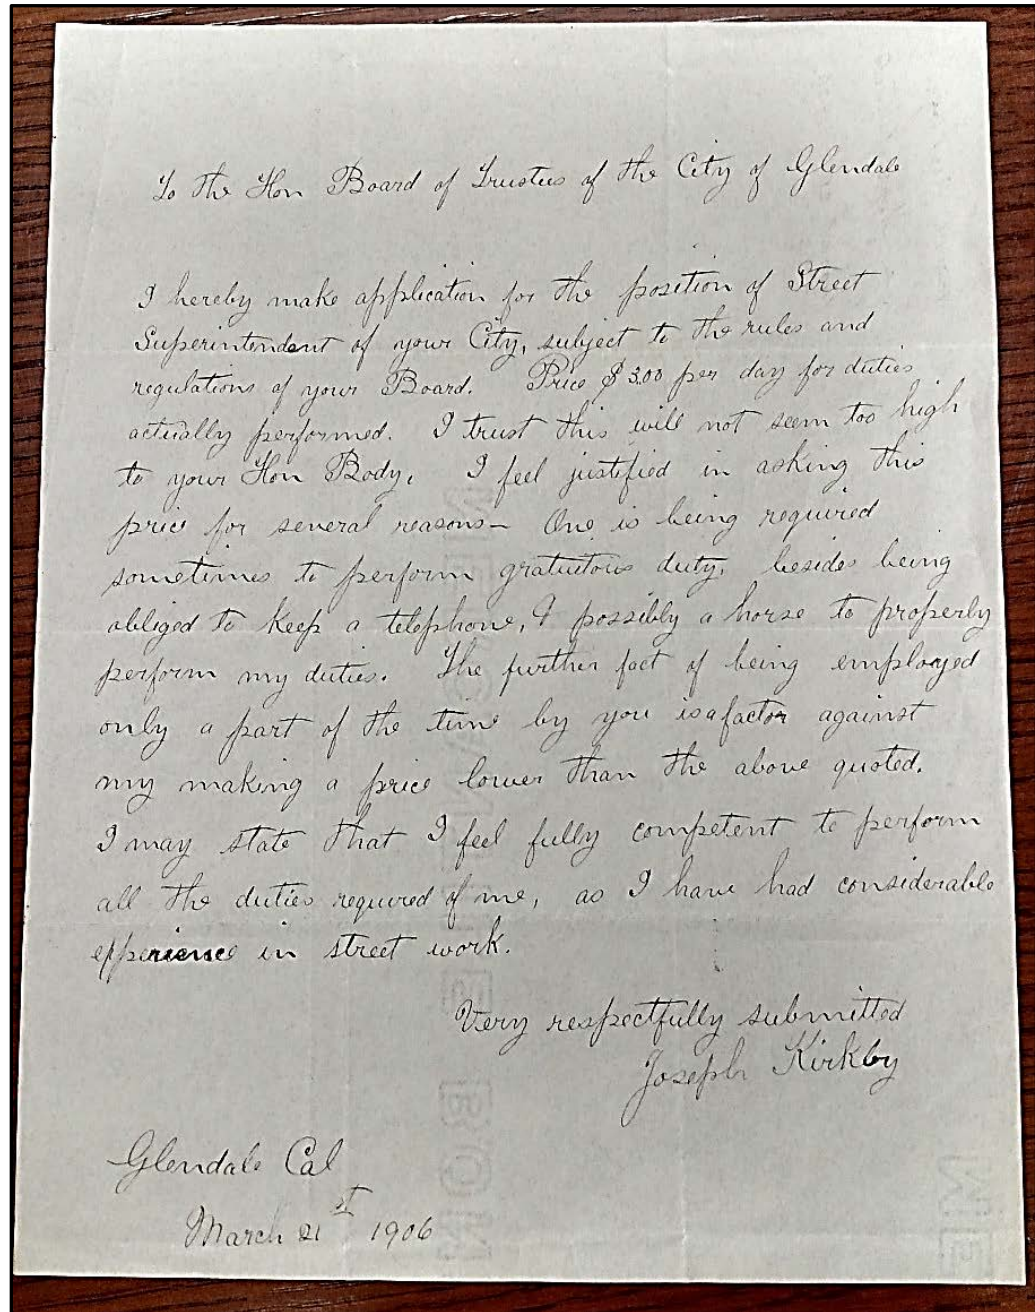 To the Hon Board of Trustees of the City of Glendale
I hereby make application for the position of Street
Superintendent of your City, subject to the rules and
regulations of your Board. Price $3.00 per day for duties
actually performed. I trust this will not seem too high
to your Hon Body. I feel justified in asking this
price for several reasons- One is being required
sometimes to perform gratuitous duty, besides being
obliged to keep a telephone, & possibly a horse to properly
perform my duties. The further fact of being employed
only a part of the time by you is a factor against
my making a price lower than the above quoted.
I may state that I feel fully competent to perform
all the duties required of me, as I have had considerable
experience in street work.
Very respectfully submitted
Joseph Kirkby
Glendale Cal
March 21st 1906